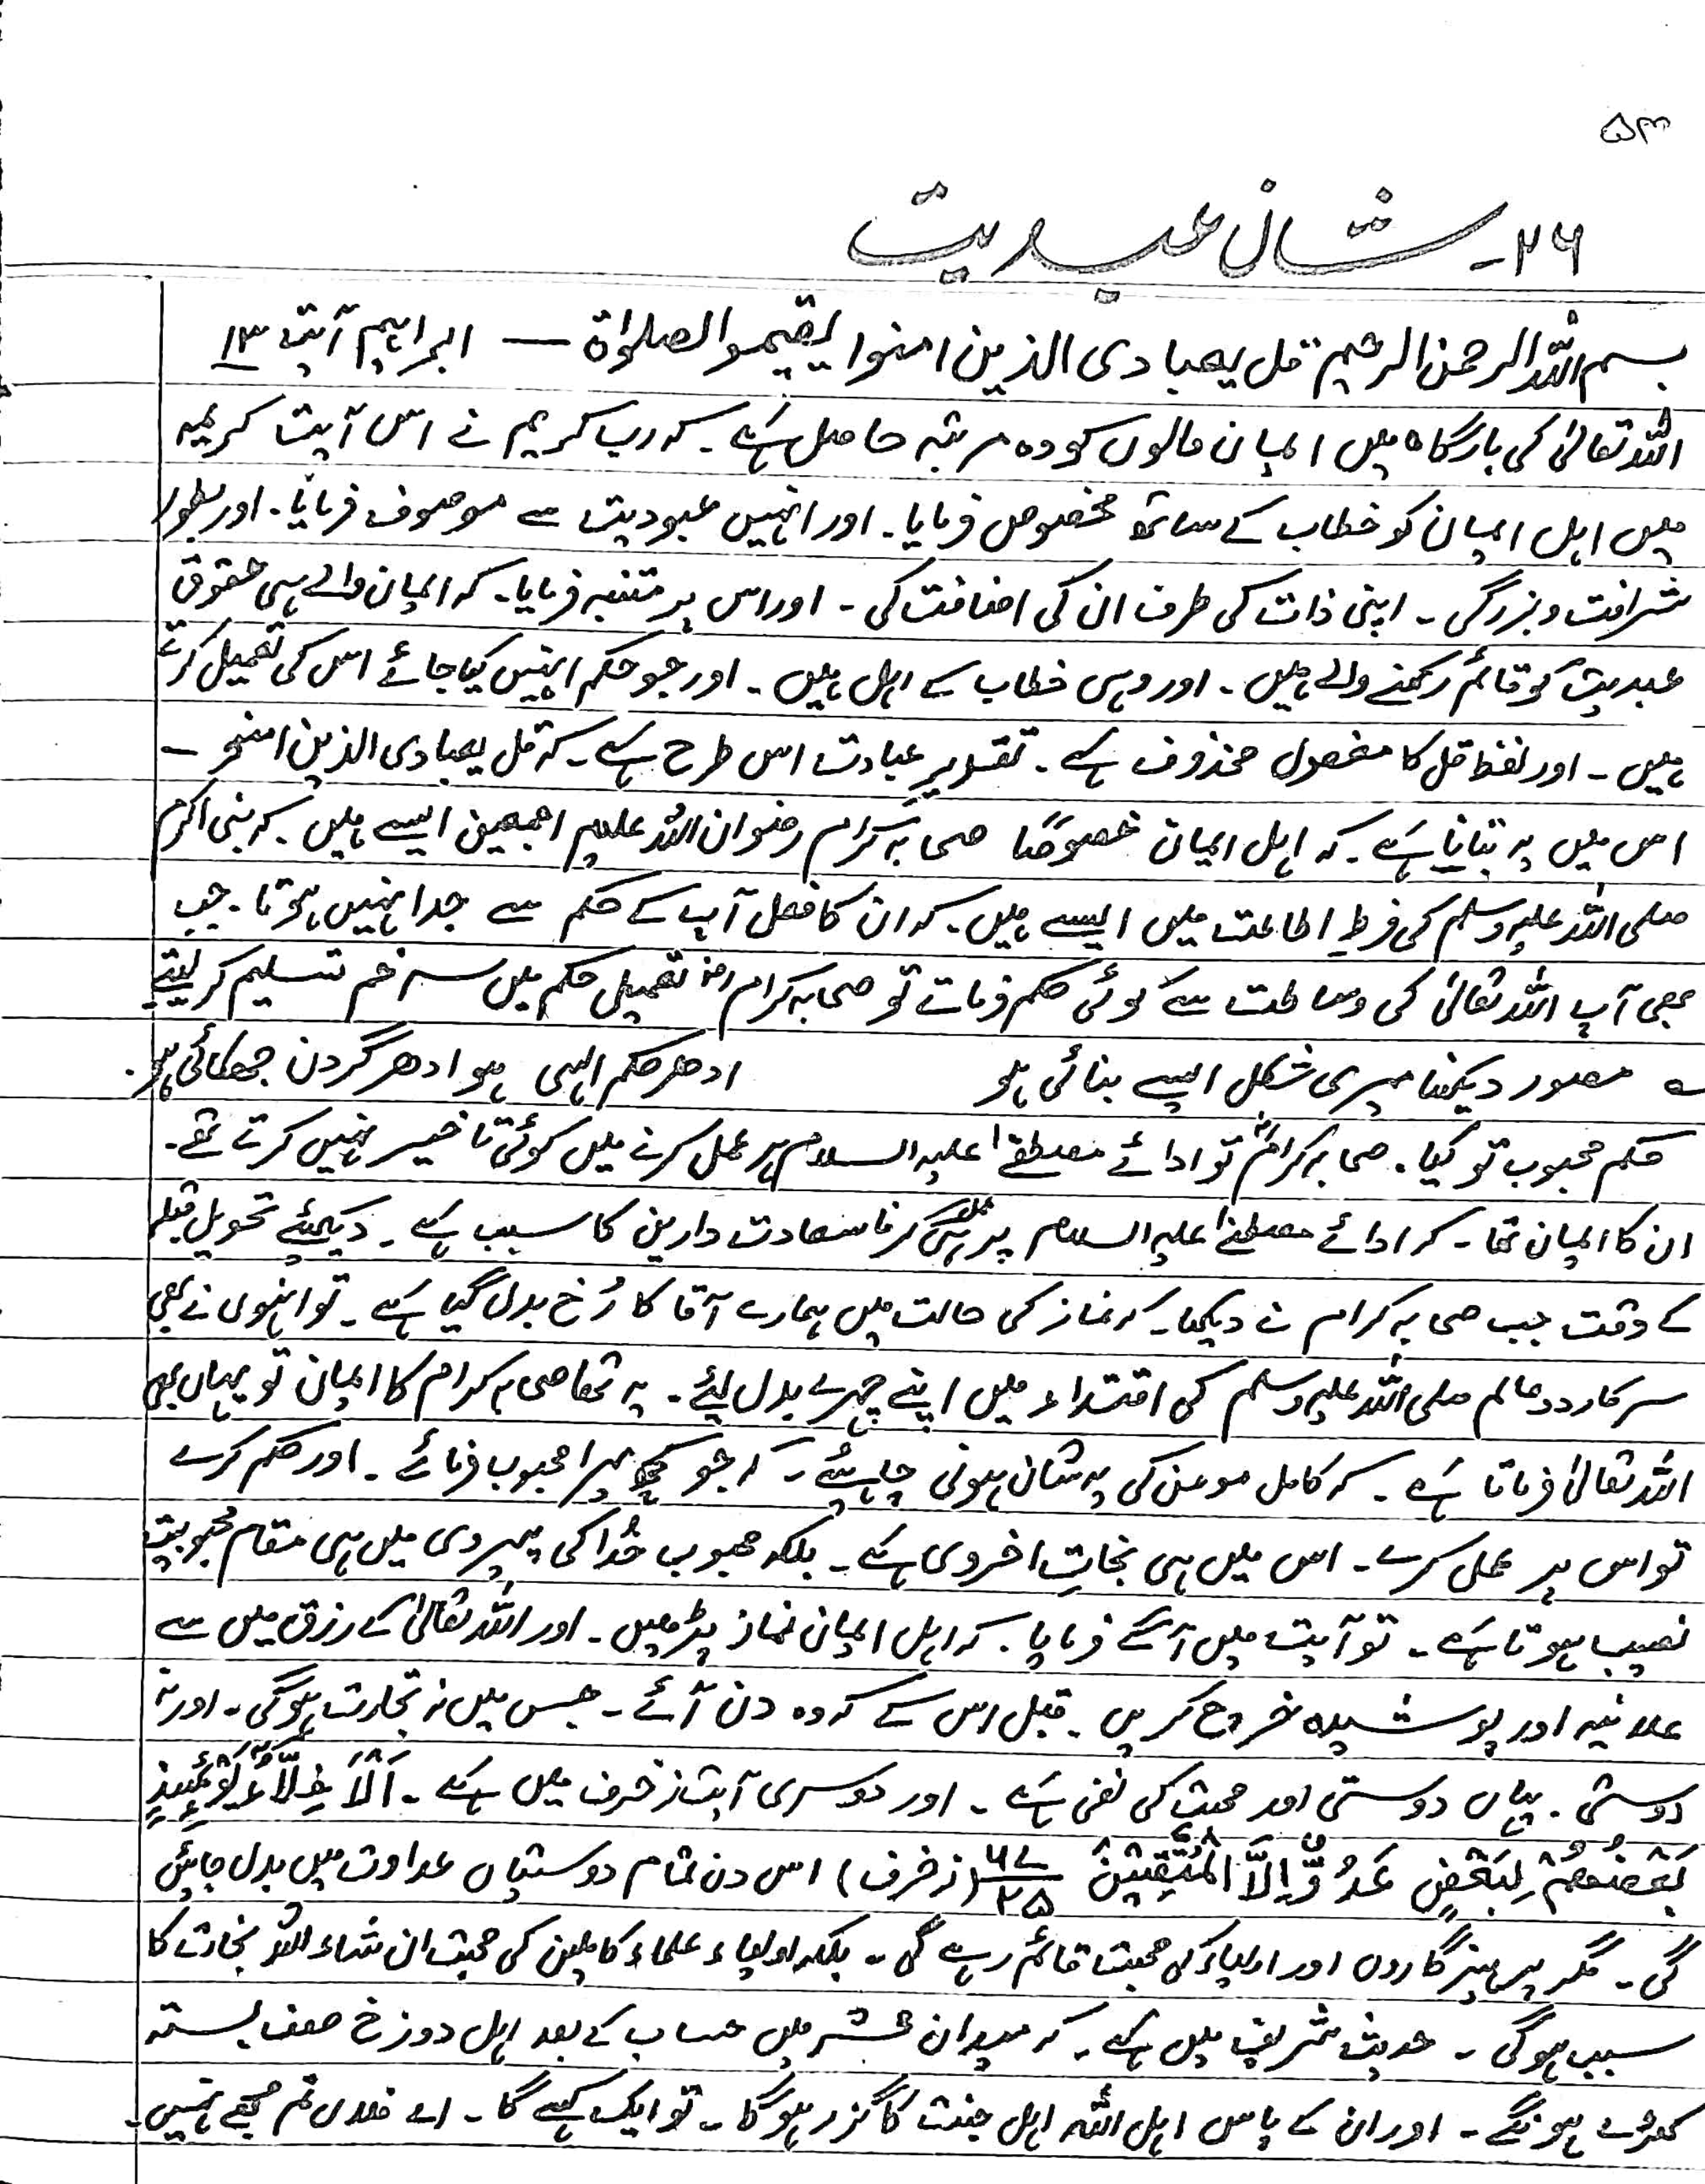 ۵۳
۲۶۔ شانِ عبدیت
بسم اللہ الرحمن الرحیم قل یعبادی الذین امنوا یقیمو الصلوٰۃ — ابراہیم آیت ۱۳
اللہ تعالیٰ کی بارگاہ میں ایمان والوں کو وہ مرتبہ حاصل ہے۔ کہ رب کریم نے اس آیت کریمہ
میں اہل ایمان کو خطاب کے ساتھ مخصوص فرمایا۔ اور انہیں عبودیت سے موصوف فرمایا۔ اور بطور
شرافت و بزرگی۔ اپنی ذات کی طرف ان کی اضافت کی۔ اور اس پر متنبہ فرمایا۔ کہ ایمان والے ہی حقوق
عبدیت کو قائم رکھنے والے ہیں۔ اور وہی خطاب کے اہل ہیں۔ اور جو حکم انہیں کیا جائے اس کی تعمیل کرتے
ہیں۔ اور لفظ قل کا مفعول محذوف ہے۔ تقدیر عبادت اس طرح ہے۔ کہ قل یعبادی الذین امنو —
اس میں یہ بتانا ہے۔ کہ اہل ایمان خصوصًا صحابہ کرام رضوان اللہ علیہم اجمعین ایسے ہیں۔ کہ نبی اکرم
صلی اللہ علیہ وسلم کی فرطِ اطاعت میں ایسے ہیں۔ کہ ان کا فعل آپ کے حکم سے جدا نہیں ہوتا۔ جب
بھی آپ اللہ تعالیٰ کی وساطت سے کوئی حکم فرماتے تو صحابہ کرام رضؓ تعمیل حکم میں سرِ خم تسلیم کر لیتے
؎ مصور دیکھنا میری شکل ایسے بنائی ہو ادھر حکم الہی ہو ادھر گردن جھکائی ہو۔
حکم محبوب تو کیا۔ صحابہ کرامؓ تو ادائے مصطفےٰ علیہ السلام پر عمل کرنے میں کوئی تاخیر نہیں کرتے تھے۔
ان کا ایمان تھا۔ کہ ادائے مصطفےٰ علیہ السلام پر عمل کرنا سعادت دارین کا سبب ہے۔ دیکھئے تحویل قبلہ
کے وقت جب صحابہ کرام نے دیکھا۔ کہ نماز کی حالت میں ہمارے آقا کا رُخ بدل گیا ہے۔ تو انہوں نے بھی
سرکار دو عالم صلی اللہ علیہ وسلم کی اقتداء میں اپنے چہرے بدل لیئے۔ یہ تھا صحابہ کرام کا ایمان تو یہاں بھی
اللہ تعالیٰ فرماتا ہے۔ کہ کامل مومن کی یہ شان ہونی چاہیئے۔ کہ جو کچھ میرا محبوب فرمائے۔ اور حکم کرے
تو اس پر عمل کرے۔ اس میں ہی نجاتِ اخروی ہے۔ بلکہ محبوب خُدا کی پیروی میں ہی مقام محبوبیت
نصیب ہوتا ہے۔ تو آیت میں آگے فرمایا۔ کہ اہل ایمان نماز پڑھیں۔ اور اللہ تعالیٰ کے رزق میں سے
علانیہ اور پوشیدہ خروج کریں۔ قبل اس کے کہ وہ دن آئے۔ جس میں نہ تجارت ہوگی۔ اور نہ
دوستی۔ یہاں دوستی اور محبت کی نفی ہے۔ اور دوسری آیت زخرف میں ہے۔ اَلْاَخِلَّآءُ یَوْمَئِذٍ
بَعْضُھُمْ لِبَعْضٍ عَدُوٌّ اِلَّا الْمُتَّقِیْنَ ۶۷/۲۵ (زخرف) اس دن تمام دوستیاں عداوت میں بدل جائیں
گی۔ مگر پرہیزگاروں اور اولیاء کی محبت قائم رہے گی۔ بلکہ اولیاء علماء کاملین کی محبت ان شاء اللہ نجات کا
سبب ہوگی۔ حدیث شریف میں ہے۔ کہ میدان حشر میں حساب کے بعد اہل دوزخ صف بستہ
کھڑے ہونگے۔ اور ان کے پاس اہل اللہ اہل جنت کا گزر ہوگا۔ تو ایک کہے گا۔ اے فلاں تم مجھے نہیں۔